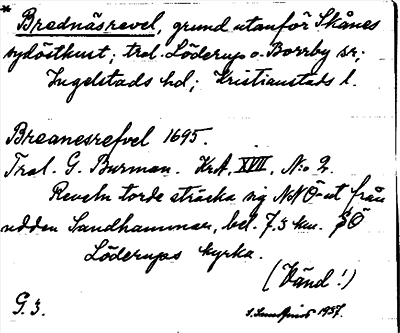 * Brednäsrevel, grund utanför Skånes
sydöstkust; trol. Löderup o. Borrby sr;
Ingelstads hd; Kristianstads l.
Breanesrefvel 1695.
Tral. G. Burman. KrA, XVII, N:o 2.
Reveln torde sträcka sig NNÖ-ut från
udden Sandhammar, bel. 7.5 km. SÖ
Löderups kyrka.
(Vänd!)
G. 3.
1937.